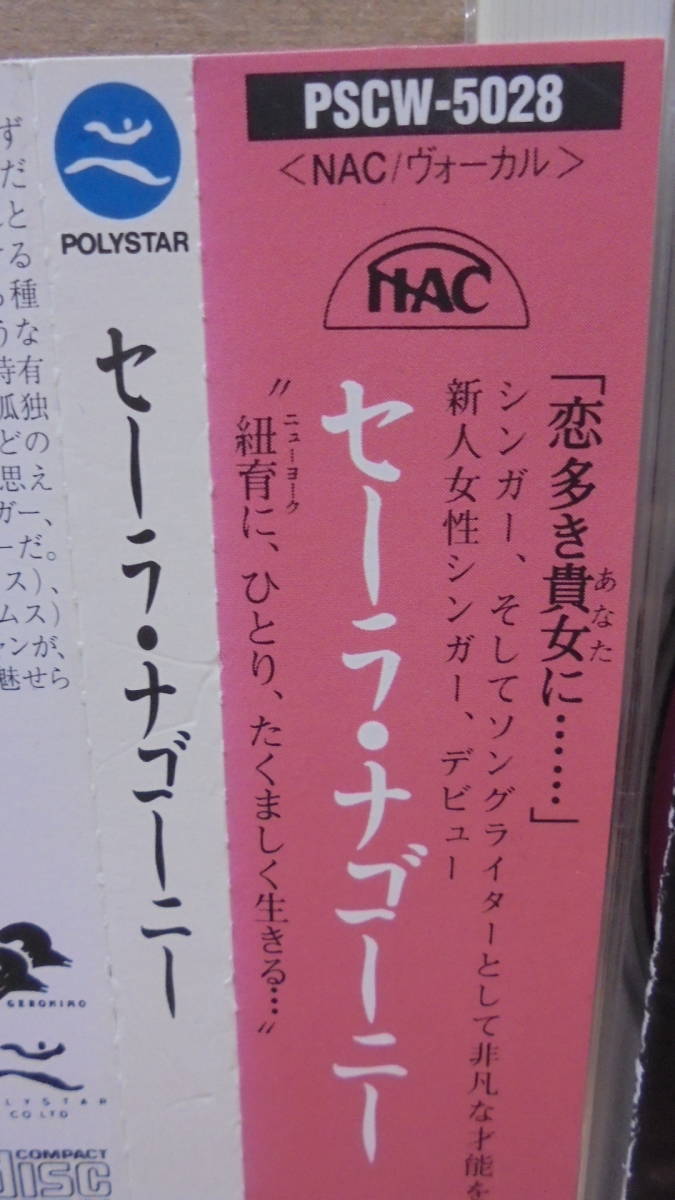 PSCW-5028
<NAC/ヴォーカル>
NAC
「恋多き貴女に……」
あなた
シンガー、そしてソングライターとして非凡な才能を
新人女性シンガー、デビュー
セーラ・ナゴーニー
"紐育に、ひとり、たくましく生きる…"
ニューヨーク
POLYSTAR
セーラ・ナゴーニー
ず
だ
と
する
種
うな
特有
孤独
どの
思え
ガー、
ーだ。
ス）、
ムス）
ャンが、
魅せら
GERONIMO
LYSTAR
CO LTD
COMPACT
disc